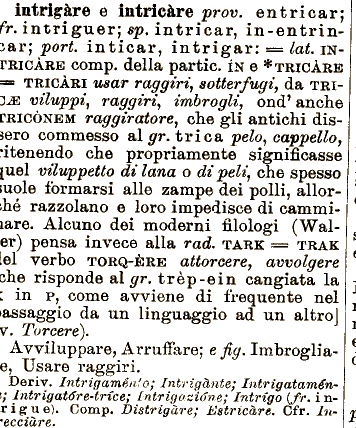 intrigàre e intricàre prov. entricar;
fr. intriguer; sp. intricar, in-entrin-
car; port. inticar, intrigar: = lat. IN-
TRICÀRE comp. della partic. ÍN e *TRICÀRE
= TRICÀRI usar raggiri, sotterfugi, da TRI-
CÆ viluppi, raggiri, imbrogli, ond' anche
TRICÒNEM raggiratore, che gli antichi dis-
sero commesso al gr. trica pelo, cappello,
ritenendo che propriamente significasse
quel viluppetto di lana o di peli, che spesso
suole formarsi alle zampe dei polli, allor-
ché razzolano e loro impedisce di cammi-
nare. Alcuno dei moderni filologi (Wal-
ter) pensa invece alla rad. TARK = TRAK
del verbo TORQ-ÈRE attorcere, avvolgere
che risponde al gr. trèp-ein cangiata la
K in P, come avviene di frequente nel
passaggio da un linguaggio ad un altro]
v. Torcere).
Avviluppare, Arruffare; e fig. Imbroglia-
re, Usare raggiri.
Deriv. Intrigaménto; Intrigànte; Intrigatamén-
te; Intrigatóre-tríce; Intrigazióne; Intrigo (fr. in-
trigue). Comp. Distrigàre; Estricàre. Cfr. In-
trecciàre.